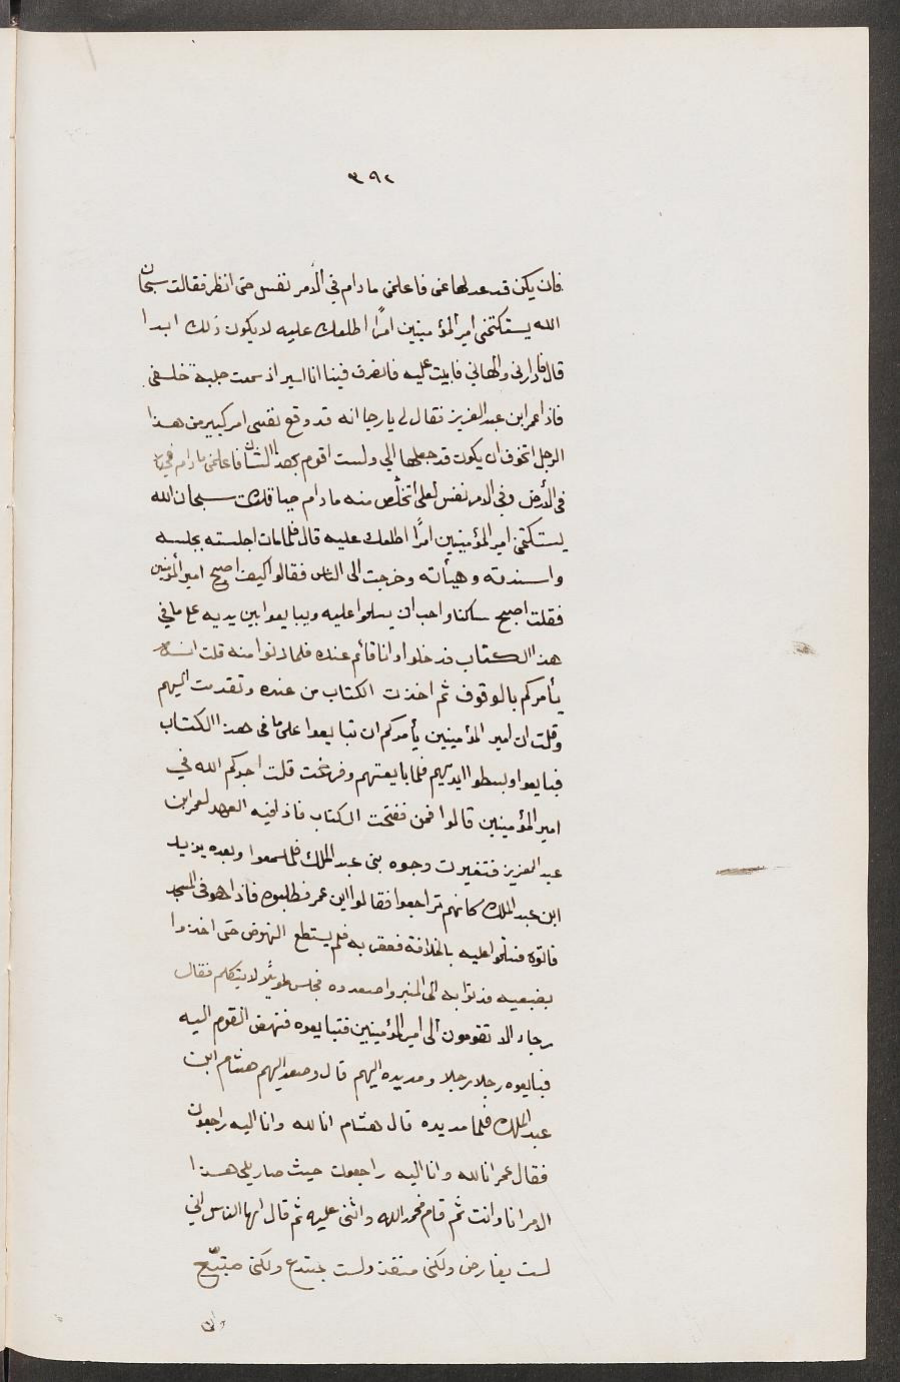 ٣٩٢
فان يكن قد عدلها عنى فاعلمنى ما دام في الأمر نفس حتى انظر فقالت سبحان
الله يستكتمنى امير المؤمينين امرًا اطلعك عليه لا يكون ذلك ابدا
قال فادارنى والهانى فابيت عليه فانصرف فبينا انا اسير اذ سمعت جلبة خلفى
فاذا عمر ابن عبد العزيز فقال لى يا رجا انه قد وقع نفسى امر كبير من هذا
الرجل اتخوف ان يكون قد جعلها الي ولست اقوم بهذا الشان فاعلمنى ما دام
فى الأرض وفي الامر نفس لعلى اتخلّص منه ما دام حيا قلت سبحان الله
يستكتمنى امير المؤمينين امرًا اطلعك عليه قال فلما مات اجلسته بمجلسه
واسندته وهيأته وخرجت الى الناس فقالوا كيف اصبح امير المؤمنين
فقلت اصبح ساكنا واحب ان يسلموا عليه ويبايعوا بين يديه على ما في
هذا الكتاب فدخلوا وانا قائم عنده فلما دنوا منه قلت انه
يأمركم بالوقوف ثم اخذت الكتاب من عنده وتقدمت اليهم
وقلت ان امير المؤمينين يأمركم ان تبايعوا على ما فى هذا الكتاب
فبايعوا وبسطوا ايديهم فلما بايعتهم وفرغت قلت اجركم الله في
امير المؤمينين قالوا فمن ففتحت الكتاب فاذا فيه العهد لعمر ابن
عبد العزيز فتغيرت وجوه بنى عبد الملك فلما سمعوا وبعده يزيد
ابن عبد الملك كانهم تراجعوا فقالوا اين عمر فطلبوه فاذا هو فى المسجد
فاتوه فسلموا عليه بالخلافة فعقر به فلم يستطع النهوض حتى اخذوا
بضبعيه فدنوا به الى المنبر واصعدوه فجلس طويلًا لا يتكلم فقال
رجاء الا تقومون الى امير المؤمينين فتبايعوه فنهض القوم اليه
فبايعوه رجلا رجلا ومد يده اليهم قال وصعد اليهم هشام ابن
عبد الملك فلما مد يده قال هشام انا لله وانا اليه راجعون
فقال عمر انا لله وانا اليه راجعون حيث صار يلى هذا
الامر انا وانت ثم قام فحمد الله واثنى عليه ثم قال ايها الناس اني
لست بفارض ولكنى منفذ ولست بمبتدع ولكنى متبّع
وان